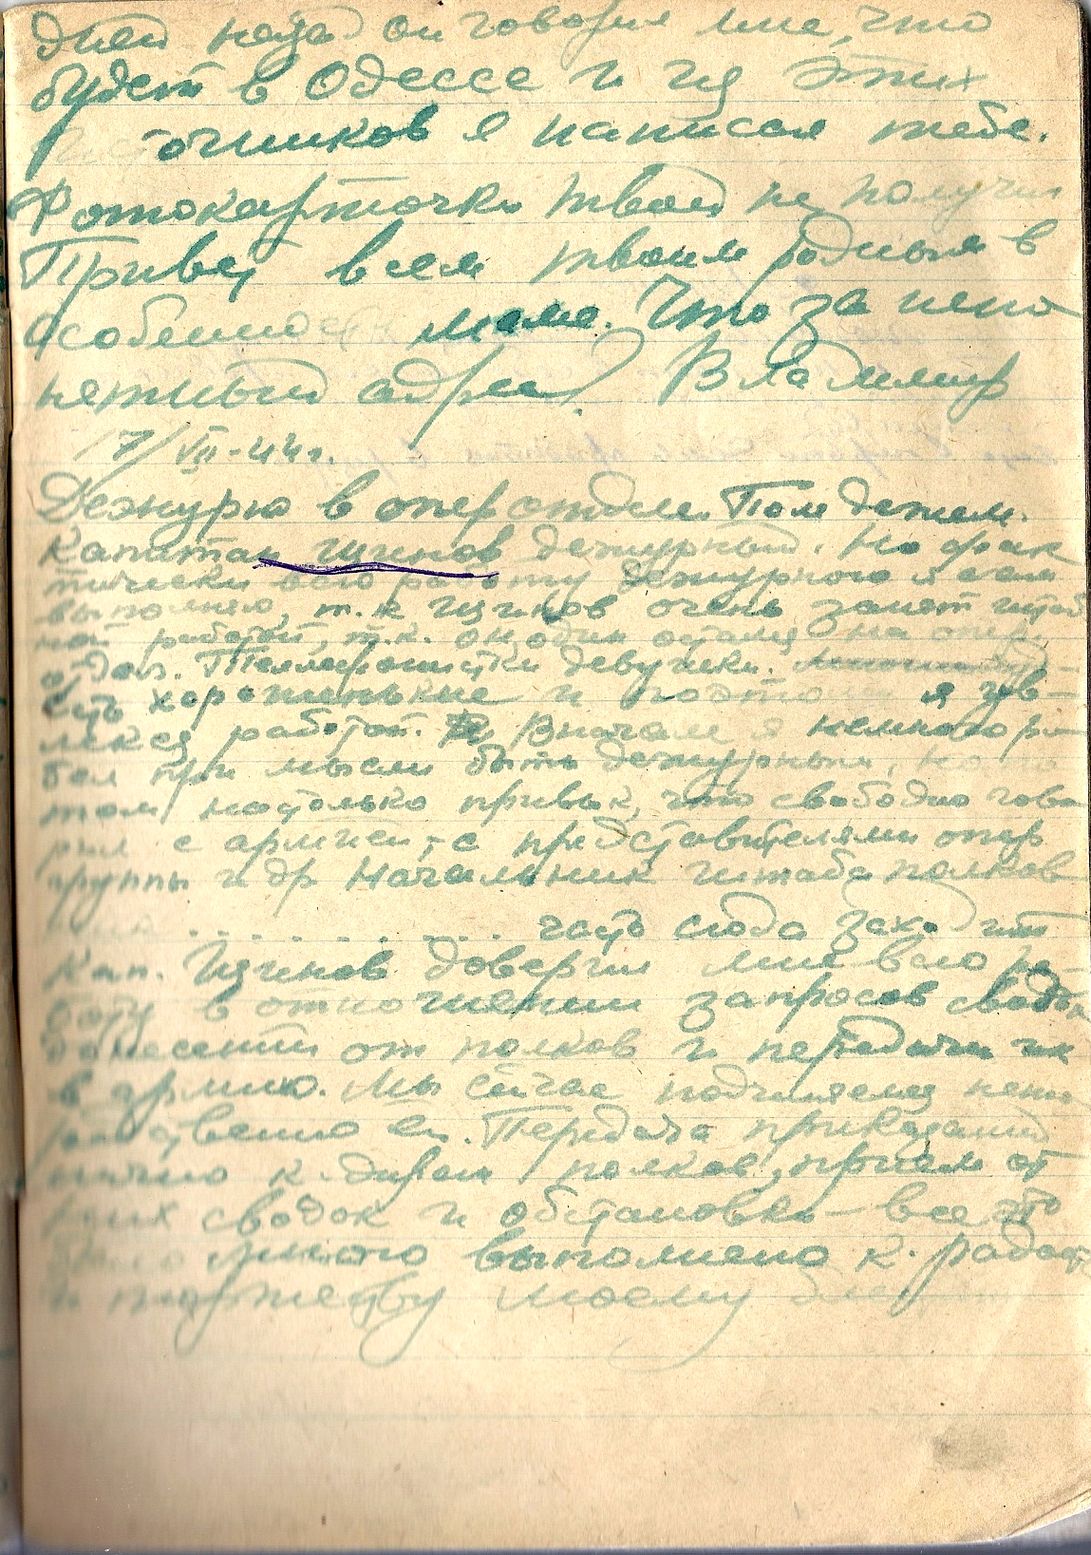 дней назад он говорил мне, что
будет в Одессе и из этих
источников я написал тебе.
Фотокарточки твоей не получил
Привет всем твоим родным в
особенности маме. Что за непо
нятный адрес? Владимир
17/VII-44г.
Дежурю в опер отделе. Пом дежем.
Капитан Изинов дежурный. Но фак
тически всю работу дежурного я сам
выполняю, т.к Изинов очень занят штаб
ной работой, т.к. он один остался на опер.
отдел. Телефонистки девушки.
есть хорошенькие и поэтому я зав-
лекся работой. Вначале я немного ро
бел при мысли быть дежурным, но по
том настолько привык, что свободно гово
рил с армией, с представителями опер
группы и др Начальник штаба полков
. . . . . . . . . часто сюда заходит
Кап. Изинов доверил мне всю ра-
боту в отношении запросов сводок
донесений от полков и передачи их
в армию. Мы сейчас подчиняемся непос
редственно ей. Передача приказаний
лично к-дирам полков, прием от
них сводок и обстановки - все это
было мною выполнено к радости
и торжеству моему